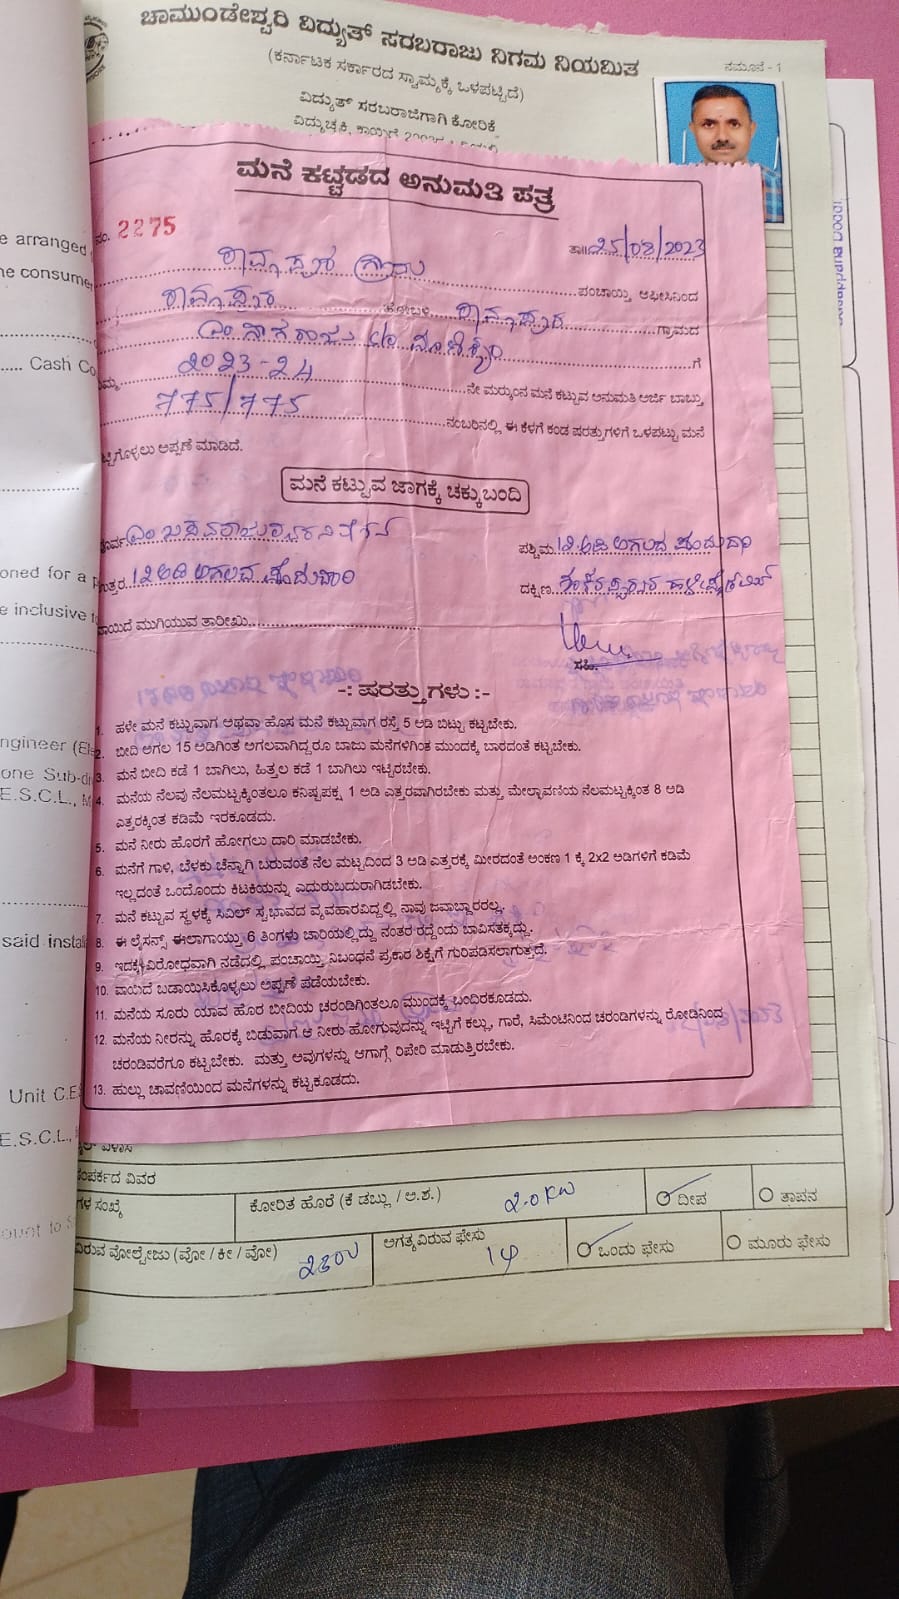 ಚಾಮುಂಡೇಶ್ವರಿ ವಿದ್ಯುತ್ ಸರಬರಾಜು ನಿಗಮ ನಿಯಮಿತ
(ಕರ್ನಾಟಕ ಸರ್ಕಾರದ ಸ್ವಾಮ್ಯಕ್ಕೆ ಒಳಪಟ್ಟಿದೆ)
ನಮೂನೆ - 1
ವಿದ್ಯುತ್ ಸರಬರಾಜಿಗಾಗಿ ಕೋರಿಕೆ
ಮನೆ ಕಟ್ಟಡದ ಅನುಮತಿ ಪತ್ರ
ನಂ. 2275
ತಾ॥ 25/08/2023
ಪಂಚಾಯ್ತಿ ಆಫೀಸಿನಿಂದ
ಹೋಬಳಿ ಗ್ರಾಮದ
ಎಂ ನಾಗರಾಜು ಗೆ
2023-24 ನೇ ಮರ್‍ಕುಂನ ಮನೆ ಕಟ್ಟುವ ಅನುಮತಿ ಅರ್ಜಿ ಬಾಬ್ತು
775/775 ನಂಬರಿನಲ್ಲಿ ಈ ಕೆಳಗೆ ಕಂಡ ಷರತ್ತುಗಳಿಗೆ ಒಳಪಟ್ಟು ಮನೆ
ಅಪ್ಪಣೆ ಮಾಡಿದೆ.
ಮನೆ ಕಟ್ಟುವ ಜಾಗಕ್ಕೆ ಚಕ್ಕುಬಂದಿ
ಎಂ ಬಸವರಾಜು
ಪಶ್ಚಿಮ 12 ಅಡಿ ಅಗಲದ
ಉತ್ತರ 12 ಅಡಿ ಅಗಲದ
ದಕ್ಷಿಣ
ವಾಯಿದೆ ಮುಗಿಯುವ ತಾರೀಖು
ಸಹಿ.
-: ಷರತ್ತುಗಳು :-
1. ಹಳೇ ಮನೆ ಕಟ್ಟುವಾಗ ಅಥವಾ ಹೊಸ ಮನೆ ಕಟ್ಟುವಾಗ ರಸ್ತೆ 5 ಅಡಿ ಬಿಟ್ಟು ಕಟ್ಟಬೇಕು.
2. ಬೀದಿ ಅಗಲ 15 ಅಡಿಗಿಂತ ಅಗಲವಾಗಿದ್ದರೂ ಬಾಜು ಮನೆಗಳಿಗಿಂತ ಮುಂದಕ್ಕೆ ಬಾರದಂತೆ ಕಟ್ಟಬೇಕು.
3. ಮನೆ ಬೀದಿ ಕಡೆ 1 ಬಾಗಿಲು, ಹಿತ್ತಲ ಕಡೆ 1 ಬಾಗಿಲು ಇಟ್ಟಿರಬೇಕು.
4. ಮನೆಯ ನೆಲವು ನೆಲಮಟ್ಟಕ್ಕಿಂತಲೂ ಕನಿಷ್ಟಪಕ್ಷ 1 ಅಡಿ ಎತ್ತರವಾಗಿರಬೇಕು ಮತ್ತು ಮೇಲ್ಛಾವಣಿಯ ನೆಲಮಟ್ಟಕ್ಕಿಂತ 8 ಅಡಿ
ಎತ್ತರಕ್ಕಿಂತ ಕಡಿಮೆ ಇರಕೂಡದು.
5. ಮನೆ ನೀರು ಹೊರಗೆ ಹೋಗಲು ದಾರಿ ಮಾಡಬೇಕು.
6. ಮನೆಗೆ ಗಾಳಿ, ಬೆಳಕು ಚೆನ್ನಾಗಿ ಬರುವಂತೆ ನೆಲ ಮಟ್ಟದಿಂದ 3 ಅಡಿ ಎತ್ತರಕ್ಕೆ ಮೀರದಂತೆ ಅಂಕಣ 1 ಕ್ಕೆ 2x2 ಅಡಿಗಳಿಗೆ ಕಡಿಮೆ
ಇಲ್ಲದಂತೆ ಒಂದೊಂದು ಕಿಟಕಿಯನ್ನು ಎದುರುಬದುರಾಗಿಡಬೇಕು.
7. ಮನೆ ಕಟ್ಟುವ ಸ್ಥಳಕ್ಕೆ ಸಿವಿಲ್ ಸ್ವಭಾವದ ವ್ಯವಹಾರವಿದ್ದಲ್ಲಿ ನಾವು ಜವಾಬ್ದಾರರಲ್ಲ.
8. ಈ ಲೈಸನ್ಸ್ ಈಲಾಗಾಯ್ತು 6 ತಿಂಗಳು ಚಾರಿಯಲ್ಲಿದ್ದು ನಂತರ ರದ್ದೆಂದು ಬಾವಿಸತಕ್ಕದ್ದು.
9. ಇದಕ್ಕೆ ವಿರೋಧವಾಗಿ ನಡೆದಲ್ಲಿ ಪಂಚಾಯ್ತಿ ನಿಬಂಧನೆ ಪ್ರಕಾರ ಶಿಕ್ಷೆಗೆ ಗುರಿಪಡಿಸಲಾಗುತ್ತದೆ.
10. ವಾಯಿದೆ ಬಡಾಯಿಸಿಕೊಳ್ಳಲು ಅಪ್ಪಣೆ ಪಡೆಯಬೇಕು.
11. ಮನೆಯ ಸೂರು ಯಾವ ಹೊರ ಬೀದಿಯ ಚರಂಡಿಗಿಂತಲೂ ಮುಂದಕ್ಕೆ ಬಂದಿರಕೂಡದು.
12. ಮನೆಯ ನೀರನ್ನು ಹೊರಕ್ಕೆ ಬಿಡುವಾಗ ಆ ನೀರು ಹೋಗುವುದನ್ನು ಇಟ್ಟಿಗೆ ಕಲ್ಲು, ಗಾರೆ, ಸಿಮೆಂಟಿನಿಂದ ಚರಂಡಿಗಳನ್ನು ರೋಡಿನಿಂದ
ಚರಂಡಿವರೆಗೂ ಕಟ್ಟಬೇಕು. ಮತ್ತು ಅವುಗಳನ್ನು ಆಗಾಗ್ಗೆ ರಿಪೇರಿ ಮಾಡುತ್ತಿರಬೇಕು.
13. ಹುಲ್ಲು ಚಾವಣಿಯಿಂದ ಮನೆಗಳನ್ನು ಕಟ್ಟಕೂಡದು.
ಸಂಪರ್ಕದ ವಿವರ
ಗಳ ಸಂಖ್ಯೆ
ಕೋರಿತ ಹೊರೆ (ಕೆ ಡಬ್ಲು / ಅ.ಶ.) 2.0KW
ದೀಪ
ತಾಪನ
ವಿರುವ ವೋಲ್ಟೇಜು (ವೋ / ಕೀ / ವೋ) 230V
ಅಗತ್ಯವಿರುವ ಫೇಸು 1φ
ಒಂದು ಫೇಸು
ಮೂರು ಫೇಸು
e arranged
he consume
Cash Co
oned for a p
e inclusive
ngineer (El
one Sub-di
E.S.C.L., M
said instal
Unit C.E
E.S.C.L.,
ount to